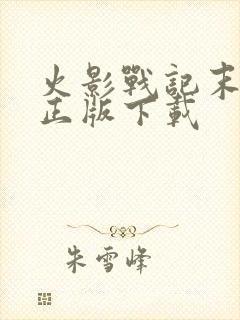 火影戰記末
正版下載
朱雪峰